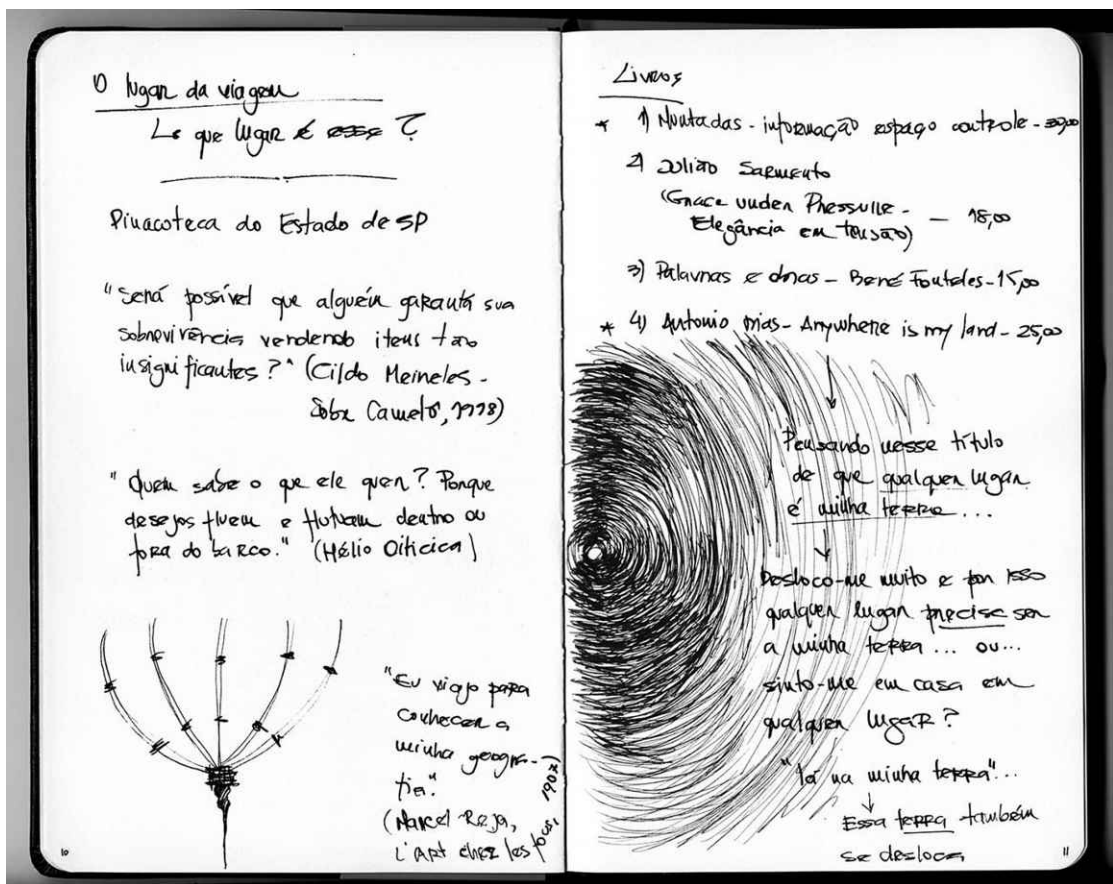 O lugar da viagem
↳ que lugar é esse?
Pinacoteca do Estado de SP
"Será possível que alguém garanta sua
sobrevivência vendendo itens tão
insignificantes?" (Cildo Meireles -
Sobre Camelô, 1998)
"Quem sabe o que ele quer? Porque
desejos fluem e flutuam dentro ou
fora do barco." (Hélio Oiticica)
"Eu viajo para
conhecer a
minha geogra-
fia".
(Marcel Reja,
L'Art chez les fous, 1907)
10
Livros
* 1) Muntadas - informação espaço controle - 30,00
2) Julião Sarmento
(Grace under Pressure -
Elegância em tensão) - 18,00
3) Palavras e obras - Bené Fonteles - 15,00
* 4) Antonio Dias - Anywhere is my land - 25,00
Pensando nesse título
de que qualquer lugar
é minha terra...
Desloco-me muito e por isso
qualquer lugar precisa ser
a minha terra... ou...
sinto-me em casa em
qualquer lugar?
"lá na minha terra"...
Essa terra também
se desloca
11